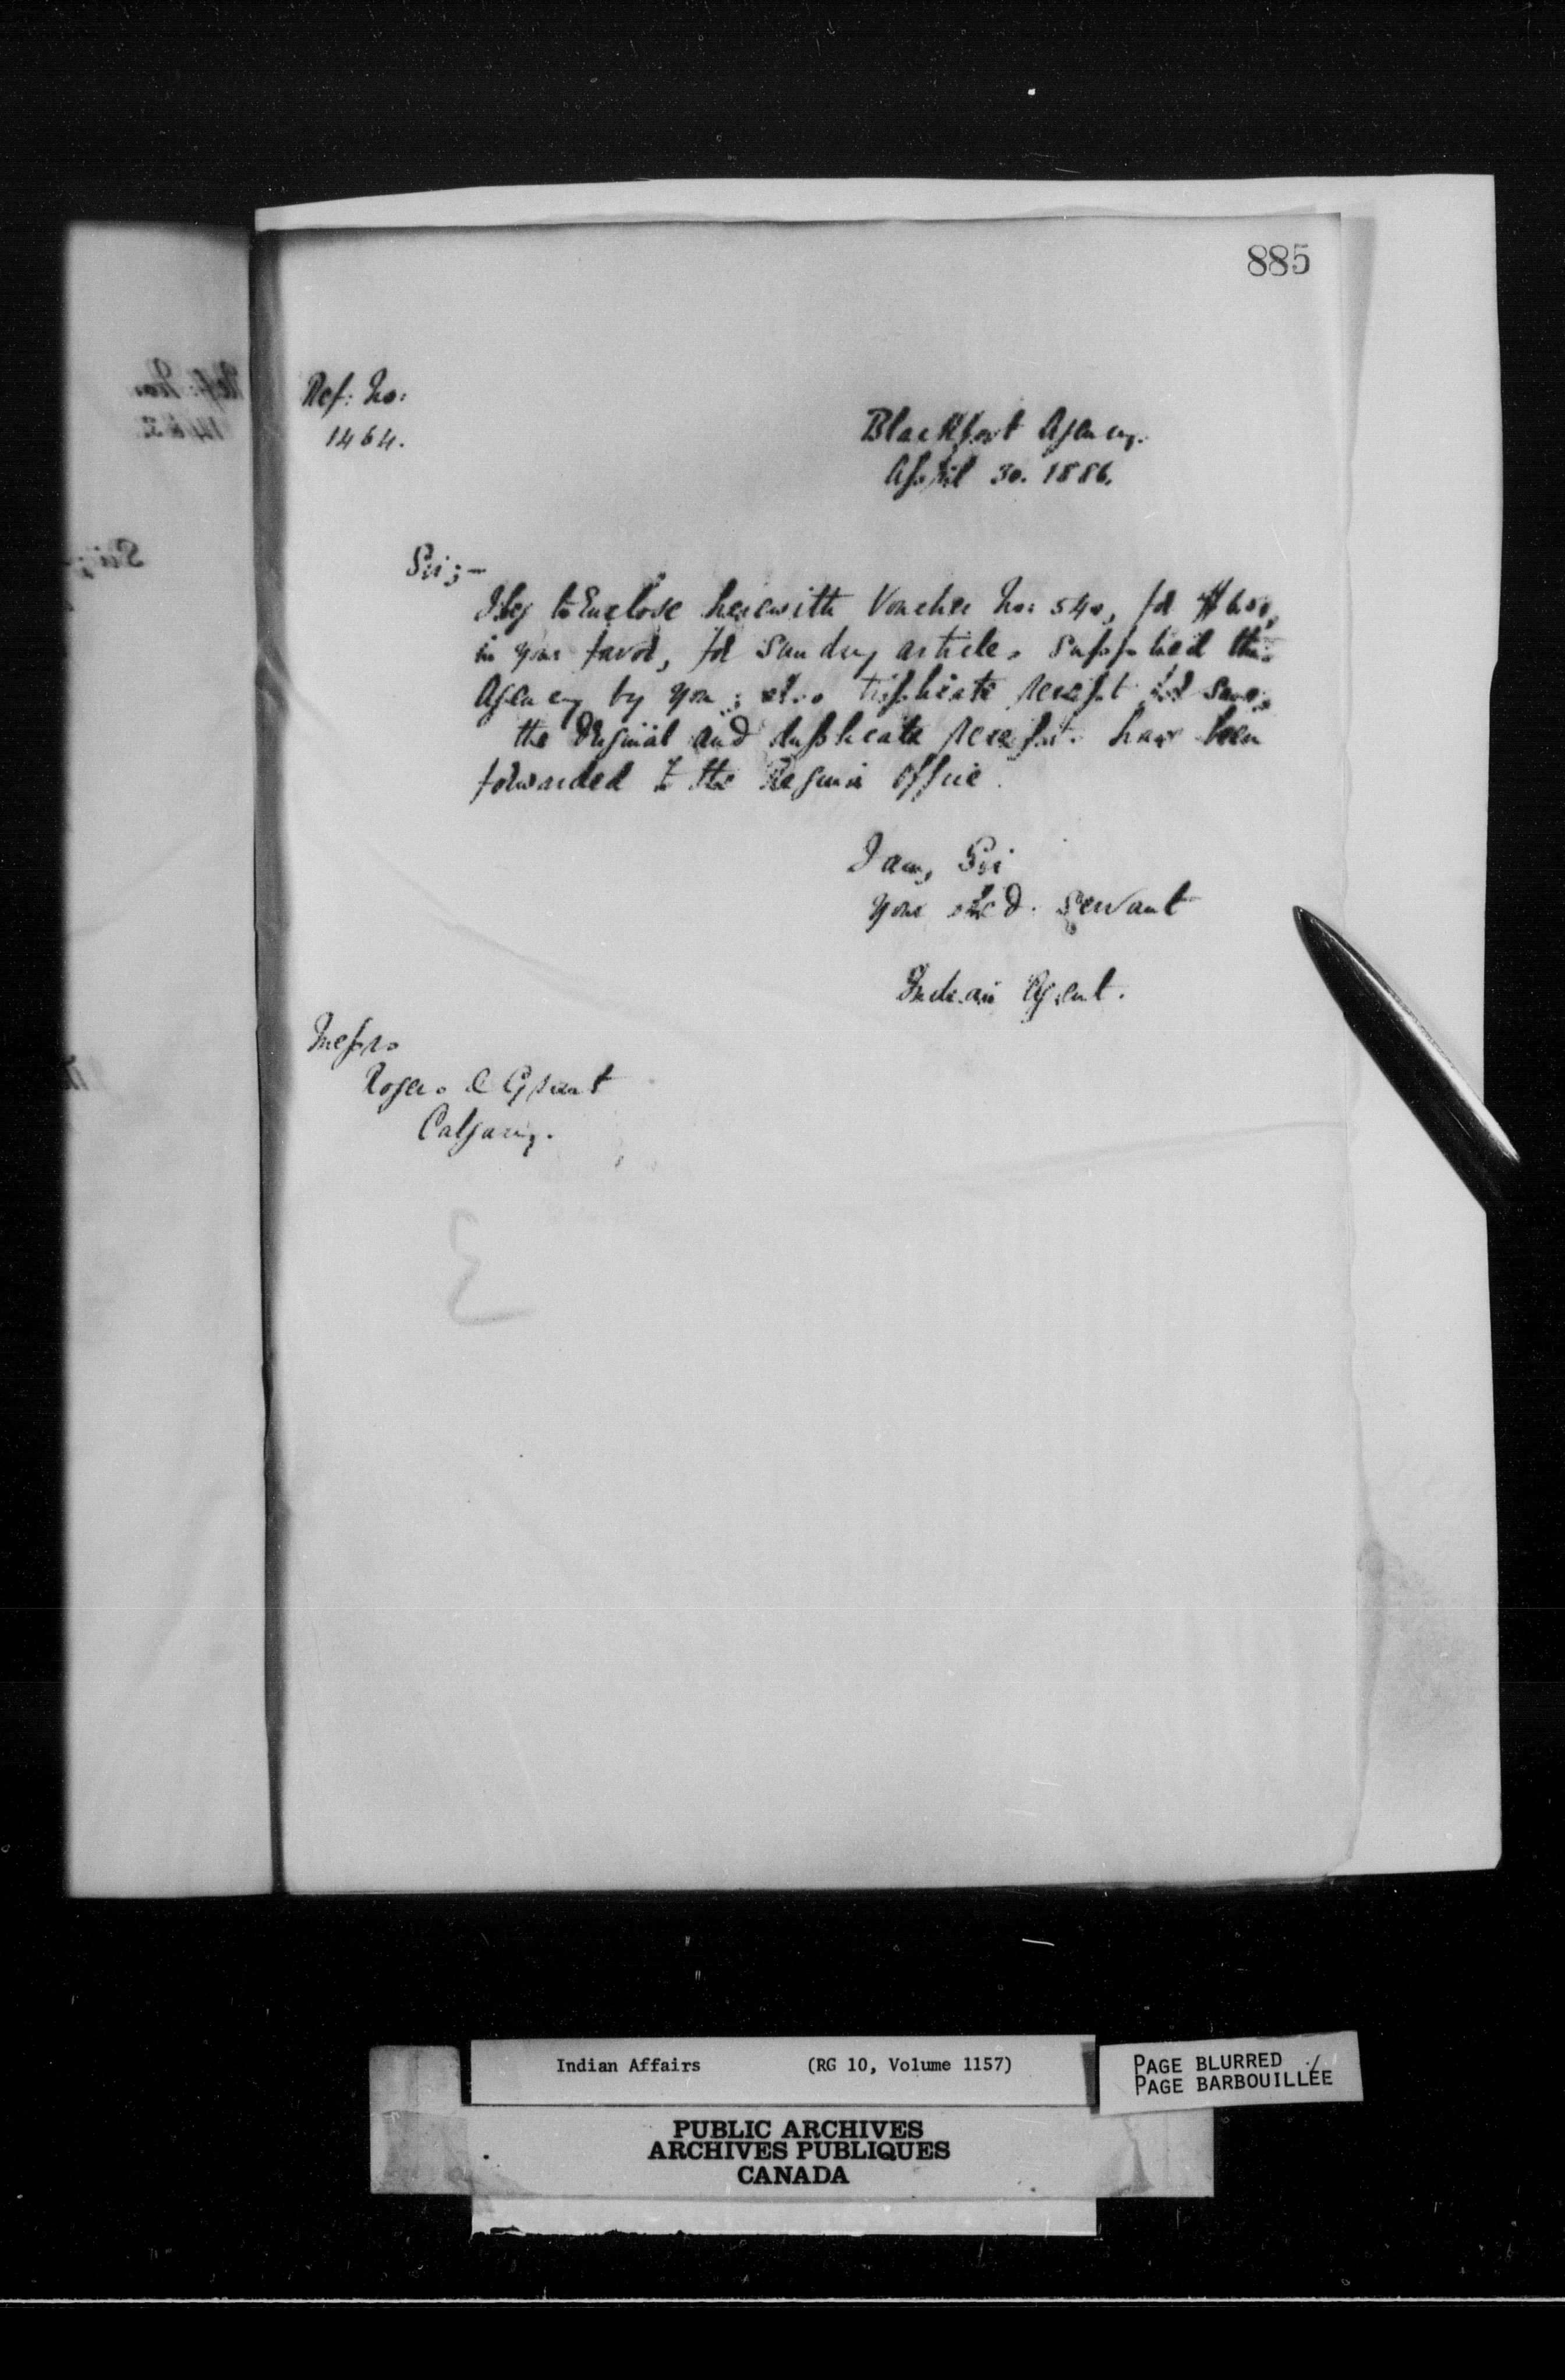 885
Ref: No:
1464.
Blackfoot Agency.
April 30. 1886.
Sir;-
I beg to Enclose herewith Voucher No: 540, for
in your favor, for sundry articles supplied this
Agency by you; also triplicate receipt for same,
the Original and duplicate receipts have been
forwarded to the Regina Office.
I am, Sir
Your obed. Servant
Indian Agent.
Messrs
Rogers & Grant
Calgary.
Indian Affairs (RG 10, Volume 1157)
PAGE BLURRED
PAGE BARBOUILLÉE
PUBLIC ARCHIVES
ARCHIVES PUBLIQUES
CANADA